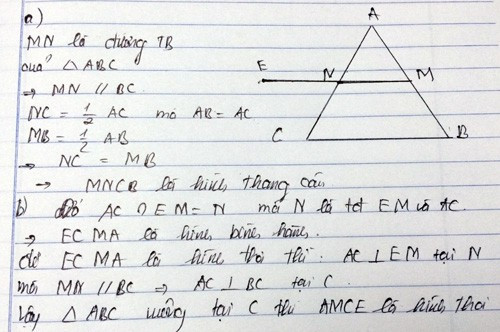 a)
MN là đường TB
của △ ABC
→ MN // BC
NC = 1/2 AC mà AB = AC
MB = 1/2 AB
→ NC = MB
→ MNCB là hình thang cân
b) Do AC ∩ EM = N mà N là tđ EM và AC.
⇒ ECMA là hình bình hành.
để ECMA là hình thoi thì AC ⊥ EM tại N
mà MN // BC ⇒ AC ⊥ BC tại C
Vậy △ ABC vuông tại C thì AMCE là hình thoi
A
E
N
M
C
B